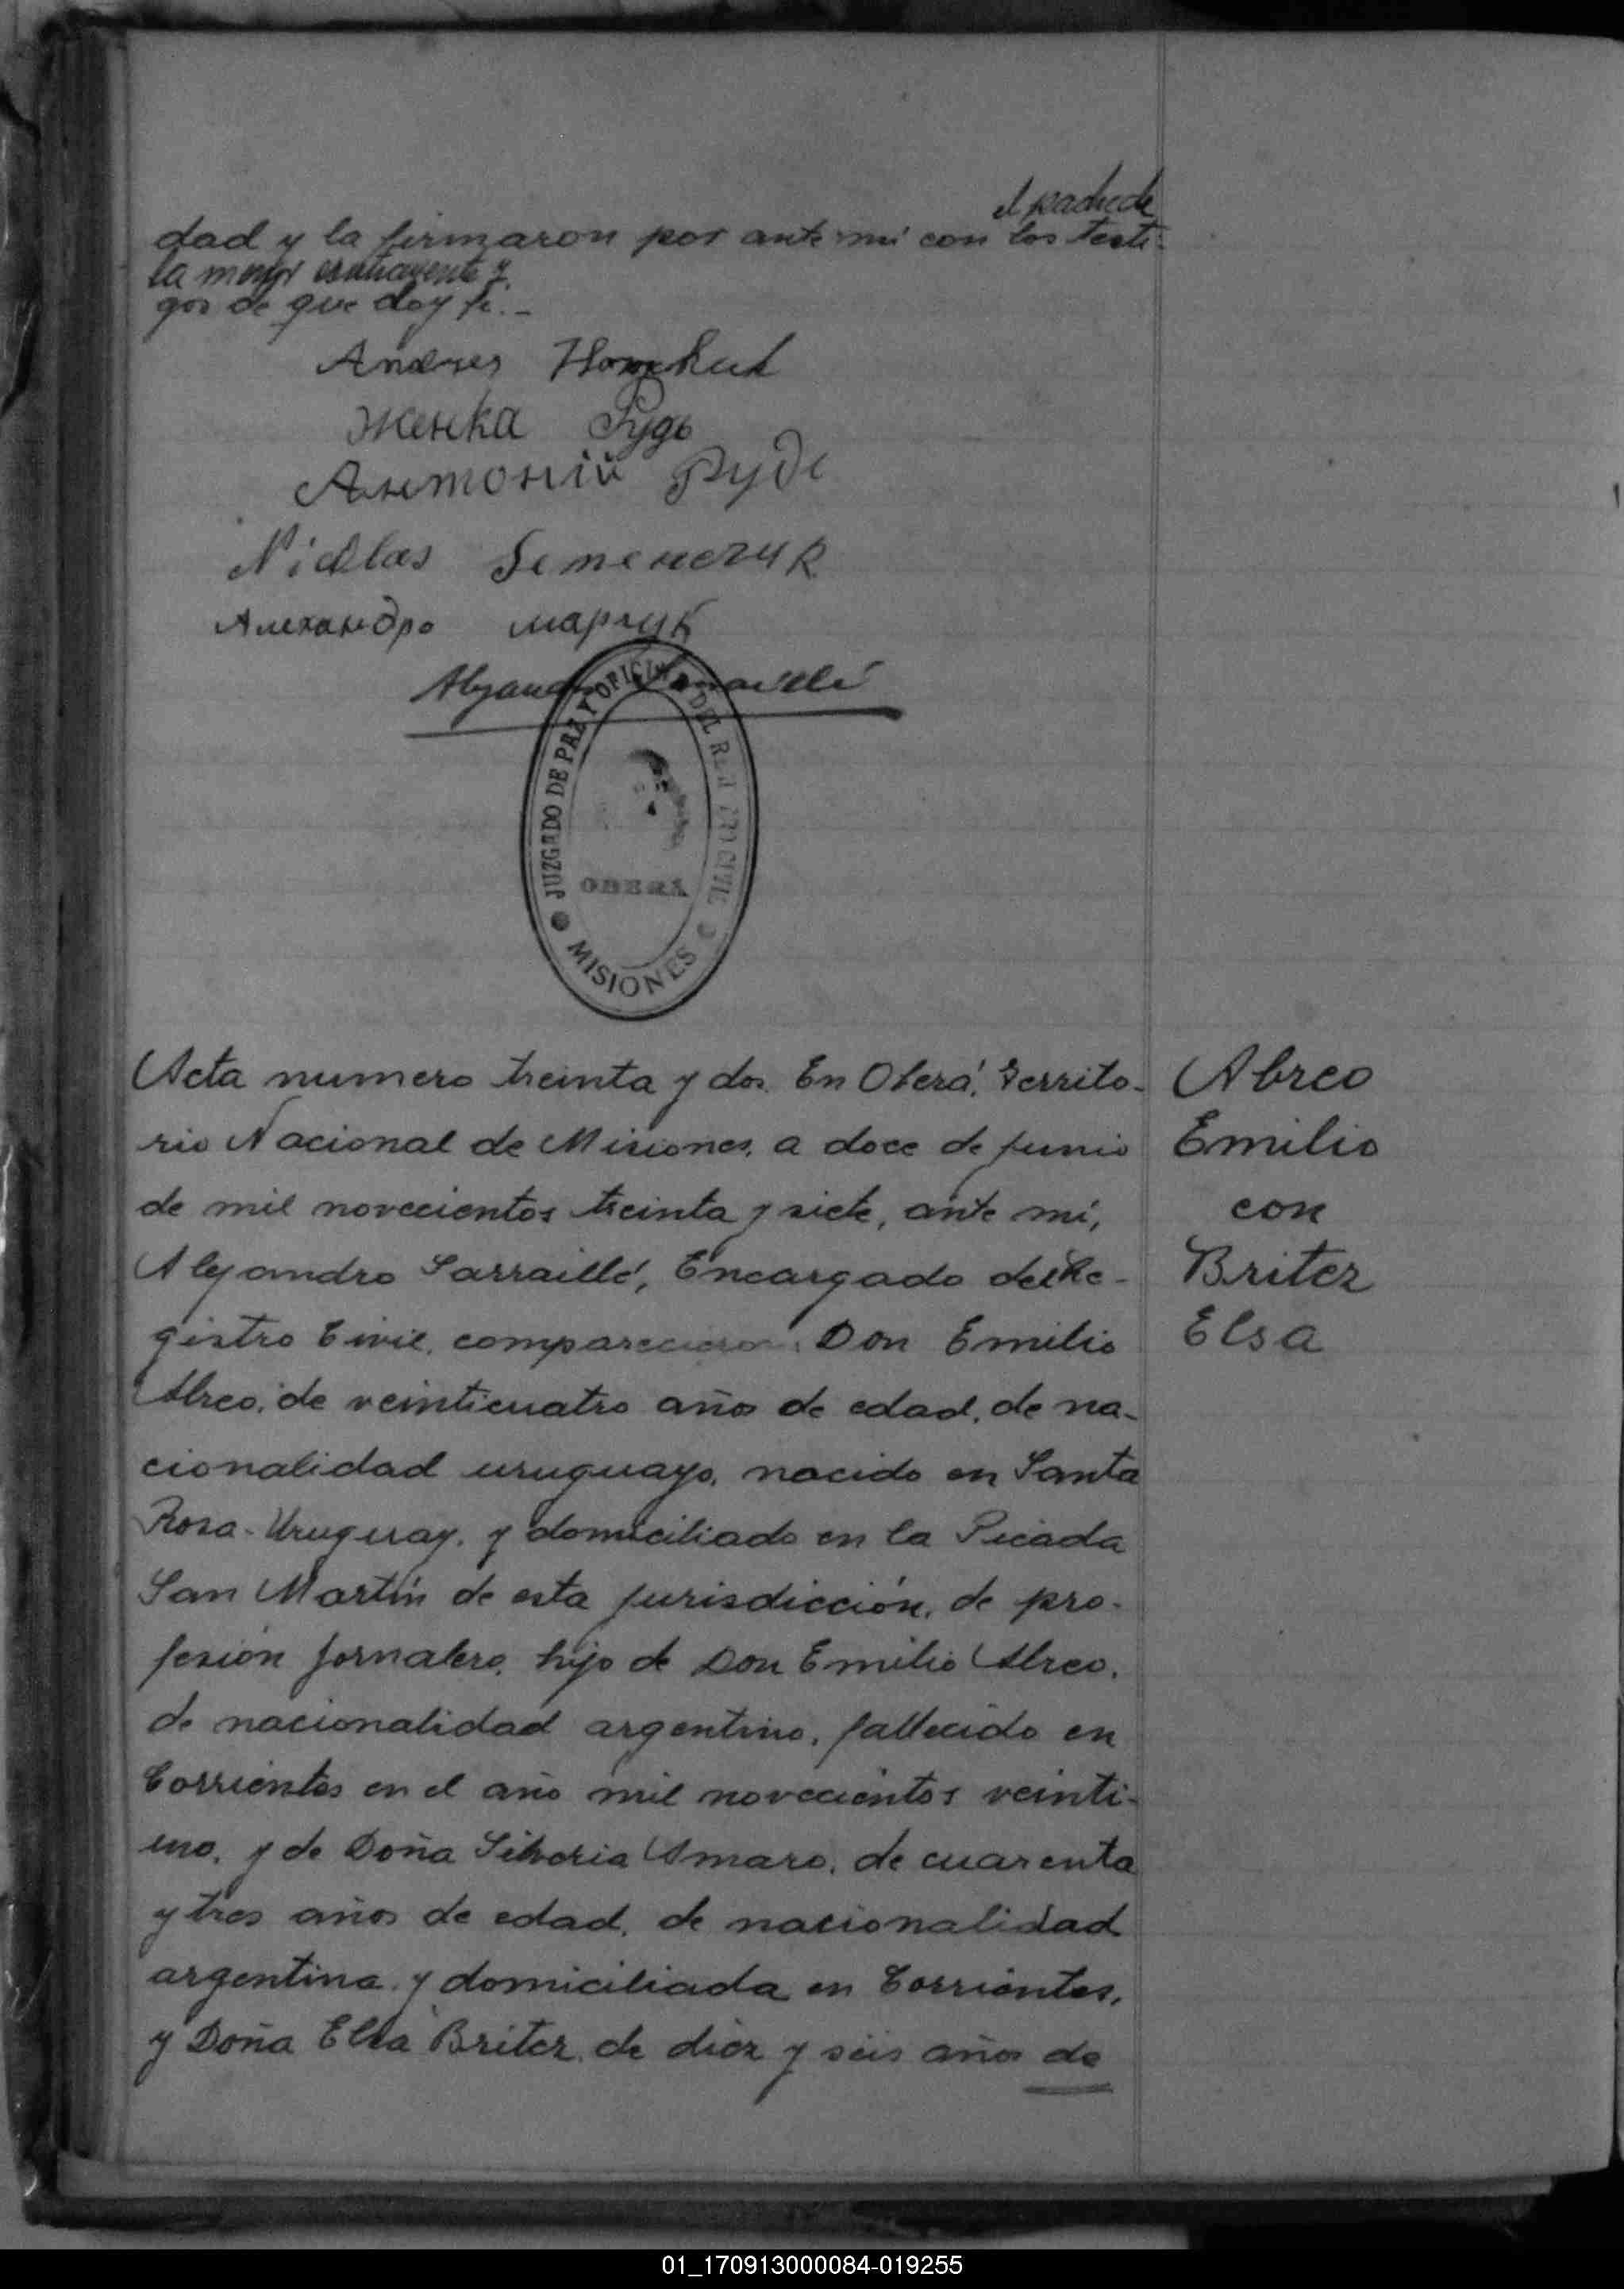 el padre de
dad y la firmaron por ante mi con los testi-
la menor contrayente y
gos de que doy fe.-
Andres
Женка Рудь
Антоній Рудь
Nicolas
Алехандро Марчук
Alejandro Sarraillé
JUZGADO DE PAZ Y OFICINA DEL REGISTRO CIVIL
OBERÁ
MISIONES
Acta numero treinta y dos. En Oberá, Territo-
rio Nacional de Misiones, a doce de junio
de mil novecientos treinta y siete, ante mí,
Alejandro Sarraillé, Encargado del Re-
gistro Civil, comparecieron: Don Emilio
Abreo, de veinticuatro años de edad, de na-
cionalidad uruguayo, nacido en Santa
Rosa-Uruguay, y domiciliado en la Picada
San Martín de esta jurisdicción, de pro-
fesión jornalero, hijo de Don Emilio Abreo,
de nacionalidad argentino, fallecido en
Corrientes en el año mil novecientos veinti-
uno, y de Doña Silveria Amaro, de cuarenta
y tres años de edad, de nacionalidad
argentina y domiciliada en Corrientes,
y Doña Elsa Briter, de diez y seis años de
Abreo
Emilio
con
Briter
Elsa
01_170913000084-019255